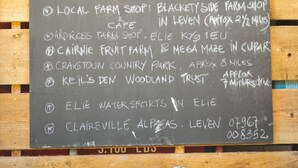 LOCAL FARM SHOP! BLACKETYSIDE FARM SHOP
& CAFE IN LEVEN (APROX 2½ MILES)
ARDROSS FARM SHOP. ELIE KY9 1EU
CAIRNIE FRUIT FARM & MEGA MAZE IN CUPAR
CRAIGTOUN COUNTRY PARK, APROX 8 MILES
KEIL'S DEN WOODLAND TRUST APROX
7 MINUTES
ELIE WATERSPORTS IN ELIE
CLAIREVILLE ALPACAS. LEVEN 07967
008352
LBS